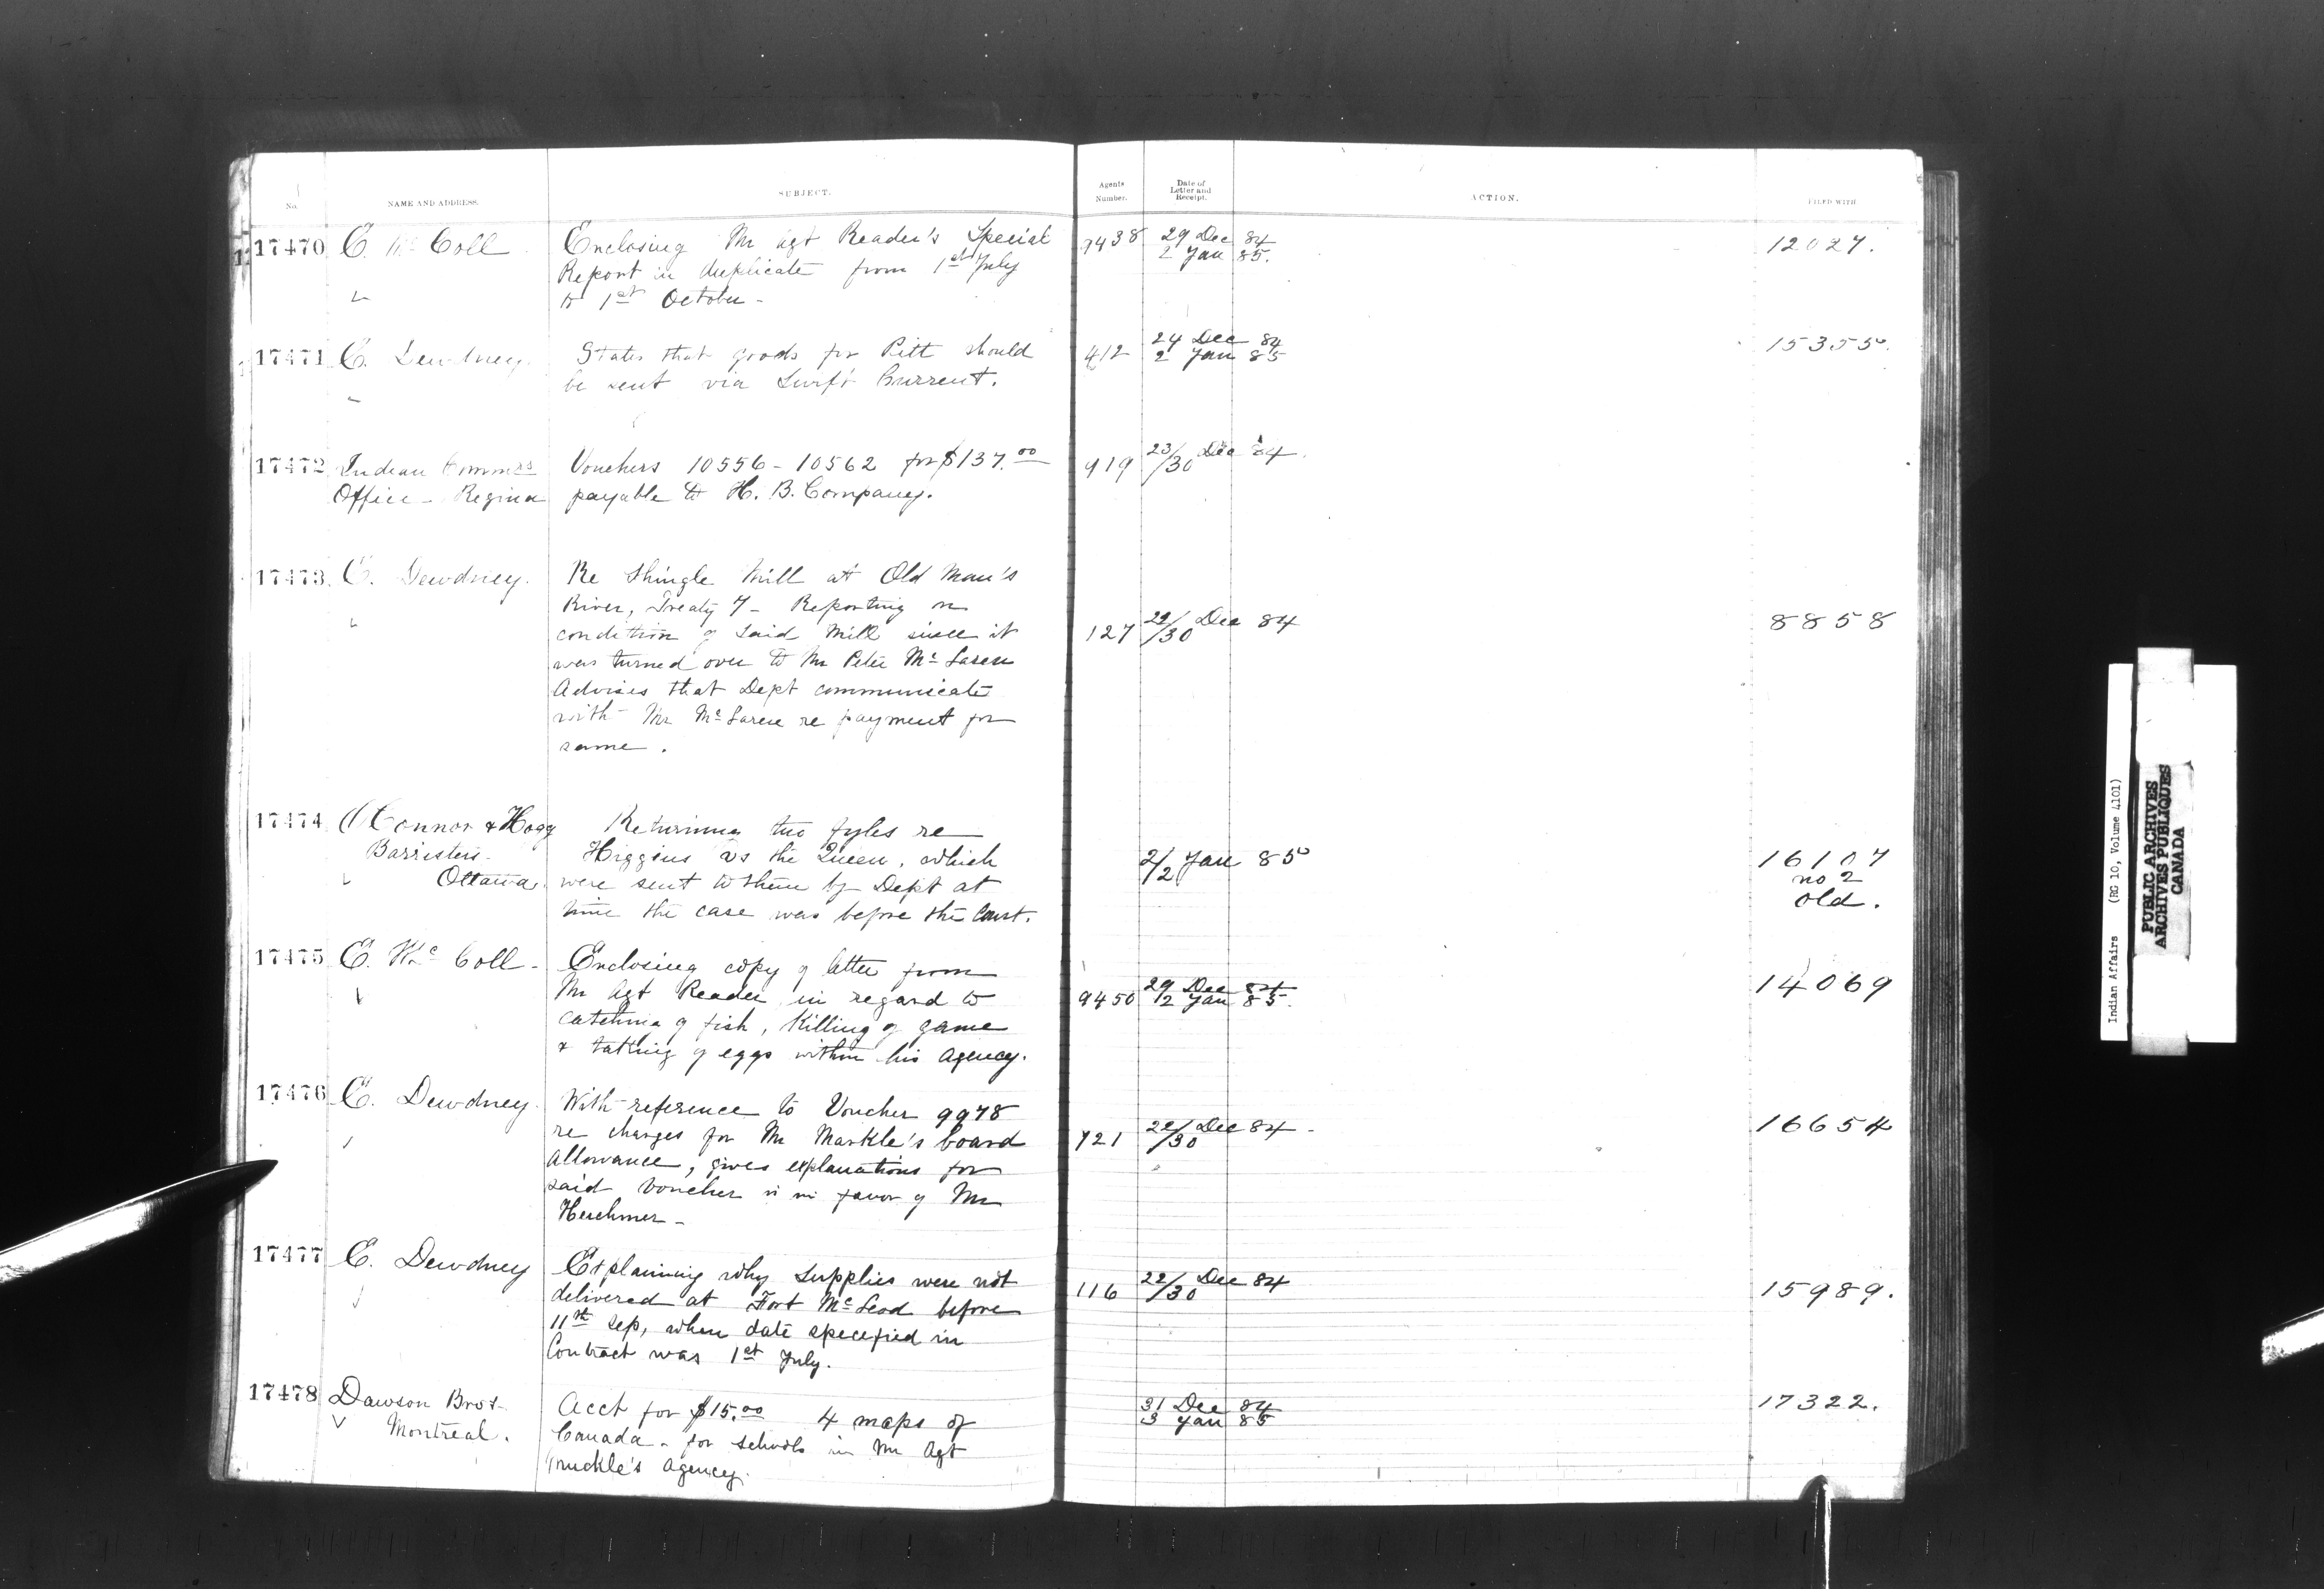 No. NAME AND ADDRESS. SUBJECT. Agents Number. Date of Letter and Receipt. ACTION. FILED WITH
17470 E. Mc Coll Enclosing Mr Agt Reader's Special 9438 29 Dec 84 12027.
Report in duplicate from 1st July 2 Jan 85.
to 1st October -
17471 E. Dewdney. States that goods for Pitt should 412 24 Dec 84 15355.
be sent via Swift Current. 2 Jan 85
17472 Indian Commrs Vouchers 10556 - 10562 for $137.00 919 23/30 Dec 84.
Office - Regina payable to H. B. Company.
17473 E. Dewdney. Re Shingle Mill at Old Man's
River, Treaty 7 - Reporting on
condition of said Mill since it 127 22/30 Dec 84 8858
was turned over to Mr Peter Mc Laren
Advises that Dept communicate
with Mr Mc Laren re payment for
same.
17474 O'Connor & Hogg Returning two fyles re
Barristers. Higgins vs the Queen, which 2/2 Jan 85 16107
Ottawa. were sent to them by Dept at no 2
time the case was before the Court. old.
17475 E. Mc Coll - Enclosing copy of letter from
Mr Agt Reader in regard to 9450 29 Dec 84 14069
catching of fish, Killing of game 2 Jan 85.
& taking of eggs within his Agency.
17476 E. Dewdney. With reference to Voucher 9978
re charges for Mr Markle's board 721 22/30 Dec 84. 16654
allowance, gives explanations for
said Voucher is in favor of Mr
Herchmer -
17477 E. Dewdney Explaining why supplies were not 116 22/30 Dec 84 15989.
delivered at Fort McLeod before
11th Sep, when date specified in
Contract was 1st July.
17478 Dawson Bros Acct for $15.00 4 maps of 31 Dec 84 17322.
Montreal. Canada - for schools in Mr Agt 3 Jan 85
Muckle's Agency.
Indian Affairs (RG 10, Volume 4101)
PUBLIC ARCHIVES
ARCHIVES PUBLIQUES
CANADA